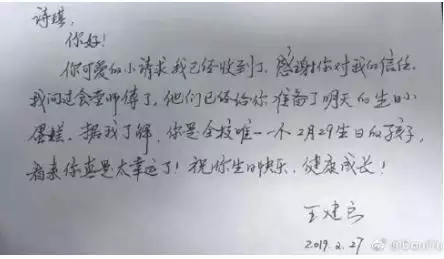 诗琪，
你好！
你可爱的小请求我已经收到了，感谢你对我的信任。
我问过食堂师傅了，他们已经给你准备了明天的生日小
蛋糕。据我了解，你是全校唯一一个2月29生日的孩子，
看来你真是太幸运了！祝你生日快乐，健康成长！
王建良
2019.2.27